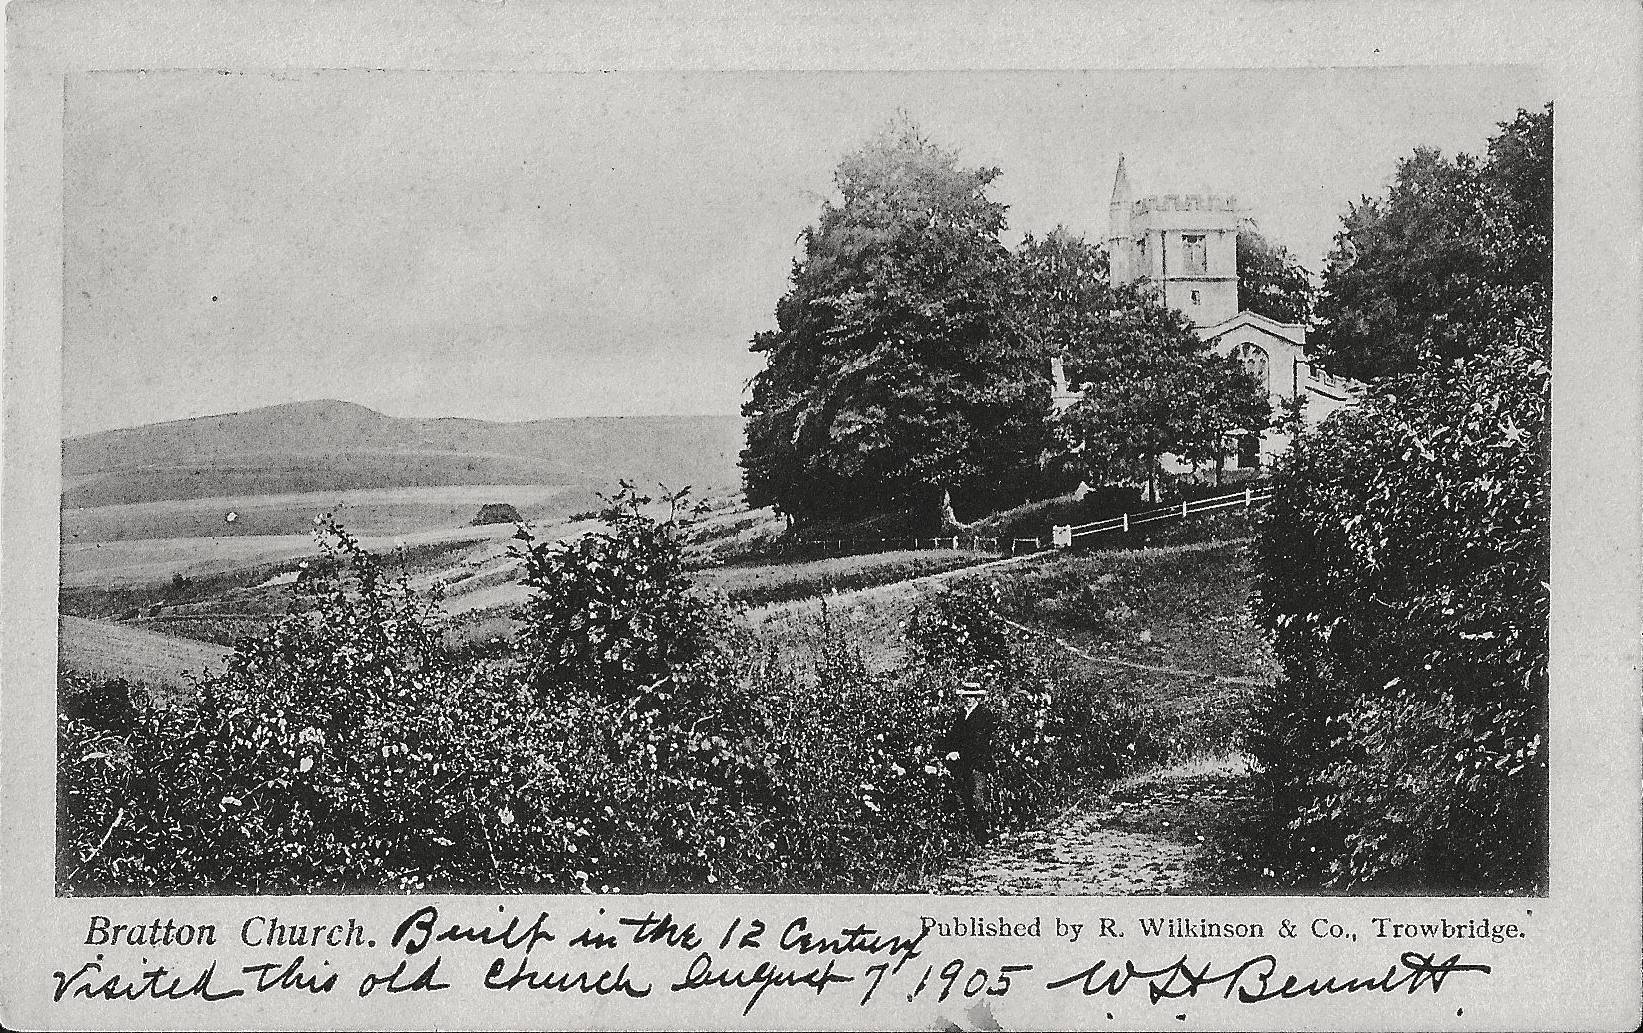 Bratton Church. Built in the 12 Century Published by R. Wilkinson & Co., Trowbridge.
Visited this old church August 7 1905 W H Bennett